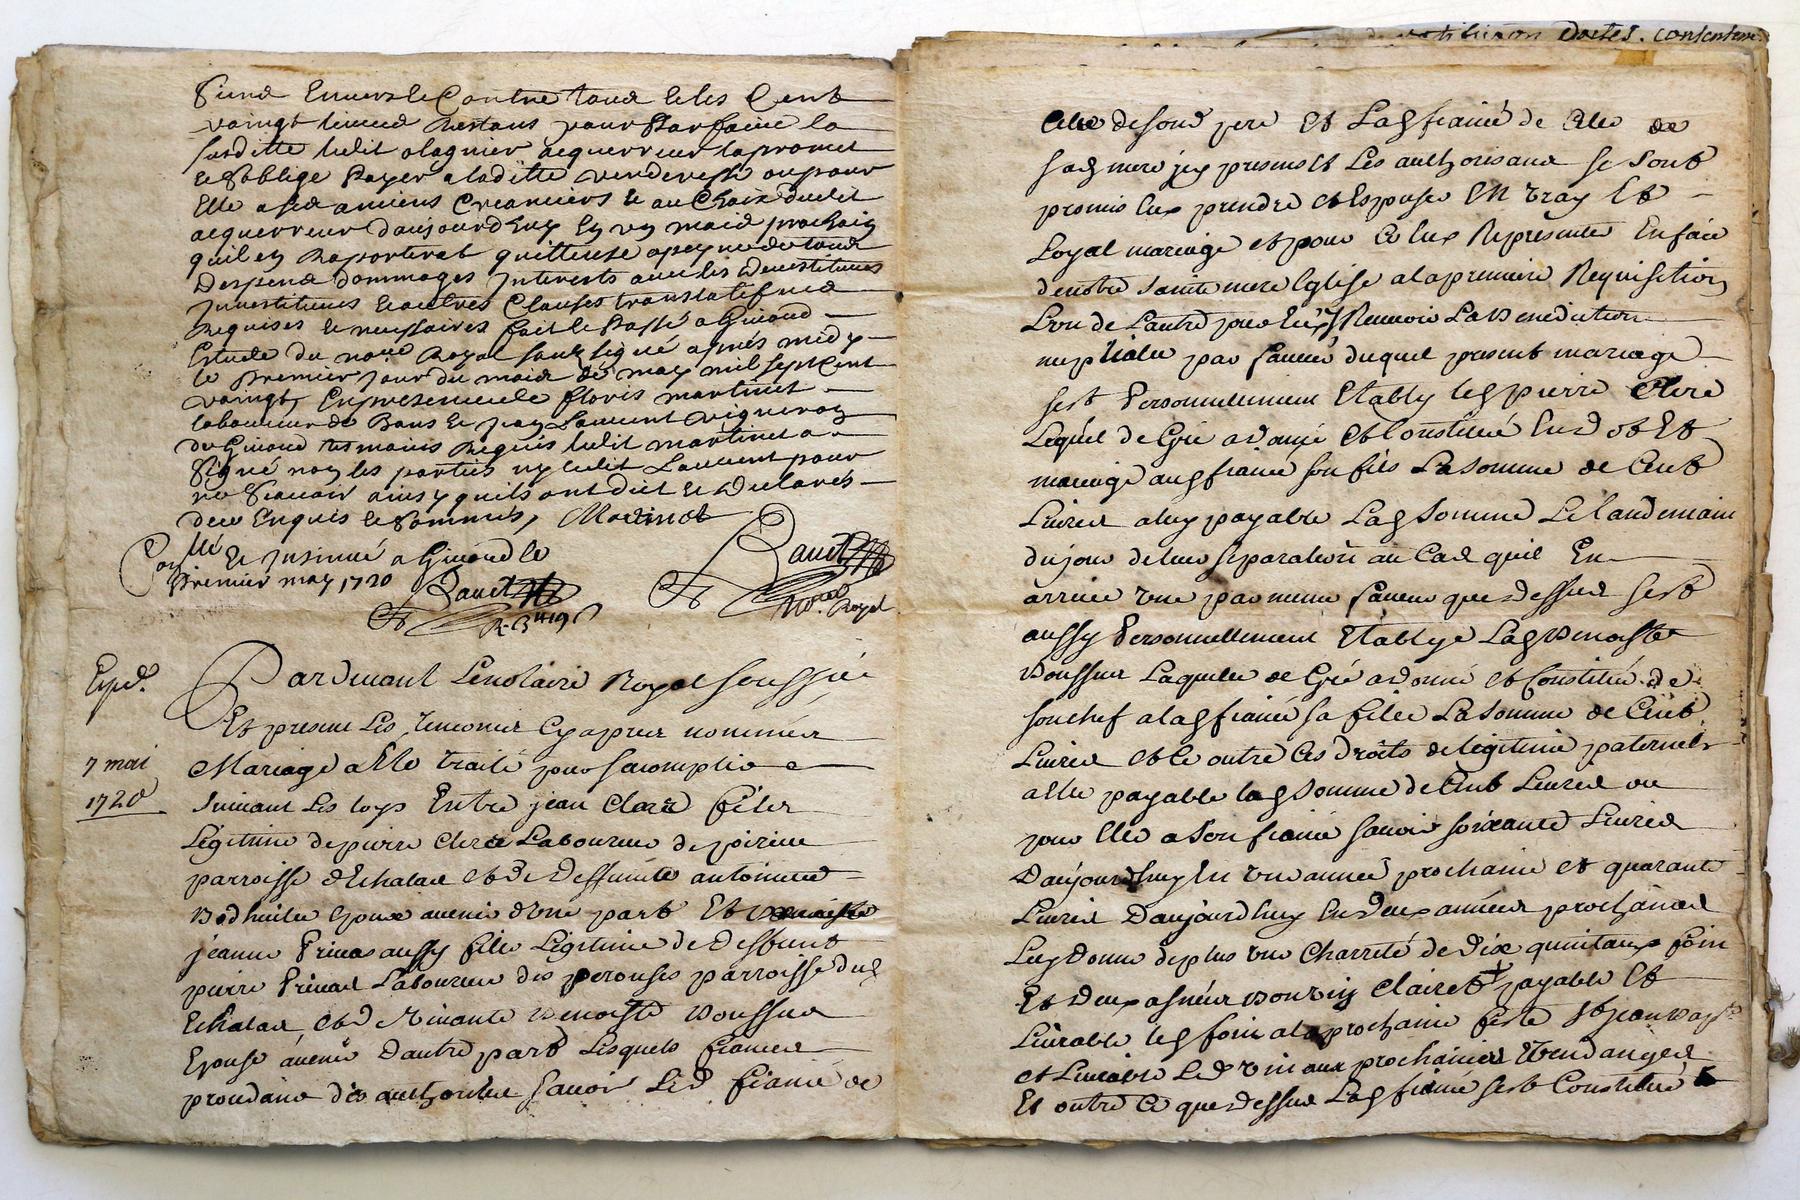 Siens envers & Contre tous & les Cent
vaingt livres Restans pour Parfaire la
susditte ledit alagnier acquerreur la promet
& soblige Payer a laditte venderesse ou pour
Elle a ses anciens Creanciers & au Choix dudit
acquerreur daujourdhuy En un mois prochain
quil en Raporterat quittense apeyne de tous
Despens dommages Interests avec les devestitures
Investitures & autres Clauses translatifves
Requises & nessaires fait & Passé a Givord
Estude du no.re Royal soubsigné après midy
le Premier Jour du mois de may mil sept Cent
vaingt, En presence de floris martinet
laboureur de Bans & Jean Laurent vigneron
de Givord tesmoins Requis ledit martinet a
Signé non les parties ny ledit Laurent pour
ne Scavoir ainsy quils ont dict & declarés
de ce Enquis & Sommés, Martinet
Con.llé & Insinué a Givord le
Premier may 1720
no.re Royal
Exped.
Pardevant Lenotaire Royal soussigé
Et presens Les temoins Cyapres nommés
7 mai
Mariage a Ete traité pour saccomplir
1720
suivant Les loys Entre jean Clere fils
Legitime de pierre Clere Laboureur de
parroisse dEchalas et de deffunte antoinette
Epoux avenir dune part Et
jeanne Privas aussy fille Legitime de deffunt
pierre Privas Laboureur des perouses parroisse dud
Echalas et de vivante Benoiste
Epouse avenir dautre part Lesquels fiances
proudans des authorites scavoir Led fiancé de
dactes.
Celle de son d pere Et Lad fiancé de Celle de
sad mere icy presens Et Les authorisans se sont
promis Eux prendre et Espouser En vray Et
Loyal mariage et pour Ce Eux Representer En face
denotre sainte mere Eglise a la premiere Requisition
Lun de Lautre pour En y Recevoir La Benediction
nuptialle par faveur duquel present mariage
sest Personnellement Etably led pierre Clere
Lequel de Gré a donné et Constitué En dot Et
mariage aud fiancé son fils La somme de Cent
Livres a luy payable Lad somme Le landemain
du jour de leur separation au Cas quil En
arrive une par meme faveur que dessus sest
aussy Personnellement Etablye Lad Benoiste
Laquelle de Gré a donné et Constitué de
son chef a lad fiancée sa fille La somme de Cent
Livres et ce outre Ces droits de legitime paternels
a Elle payable lad somme de Cent Livres ou
pour Elle a son fiancé savoir soixante Livres
Daujourdhuy En une année prochaine et quarante
Livres Daujourdhuy En deux années prochaines
Luy Donne deplus une charretté de dix quintaux foin
Et deux asnées bon vin Clairet payable Et
Livrable led foin a la prochaine feste st jean bap.te
et Livrable Led vin aux prochaines Vendanges
Et outre Ce que dessus Lad fiancé sest Constitué